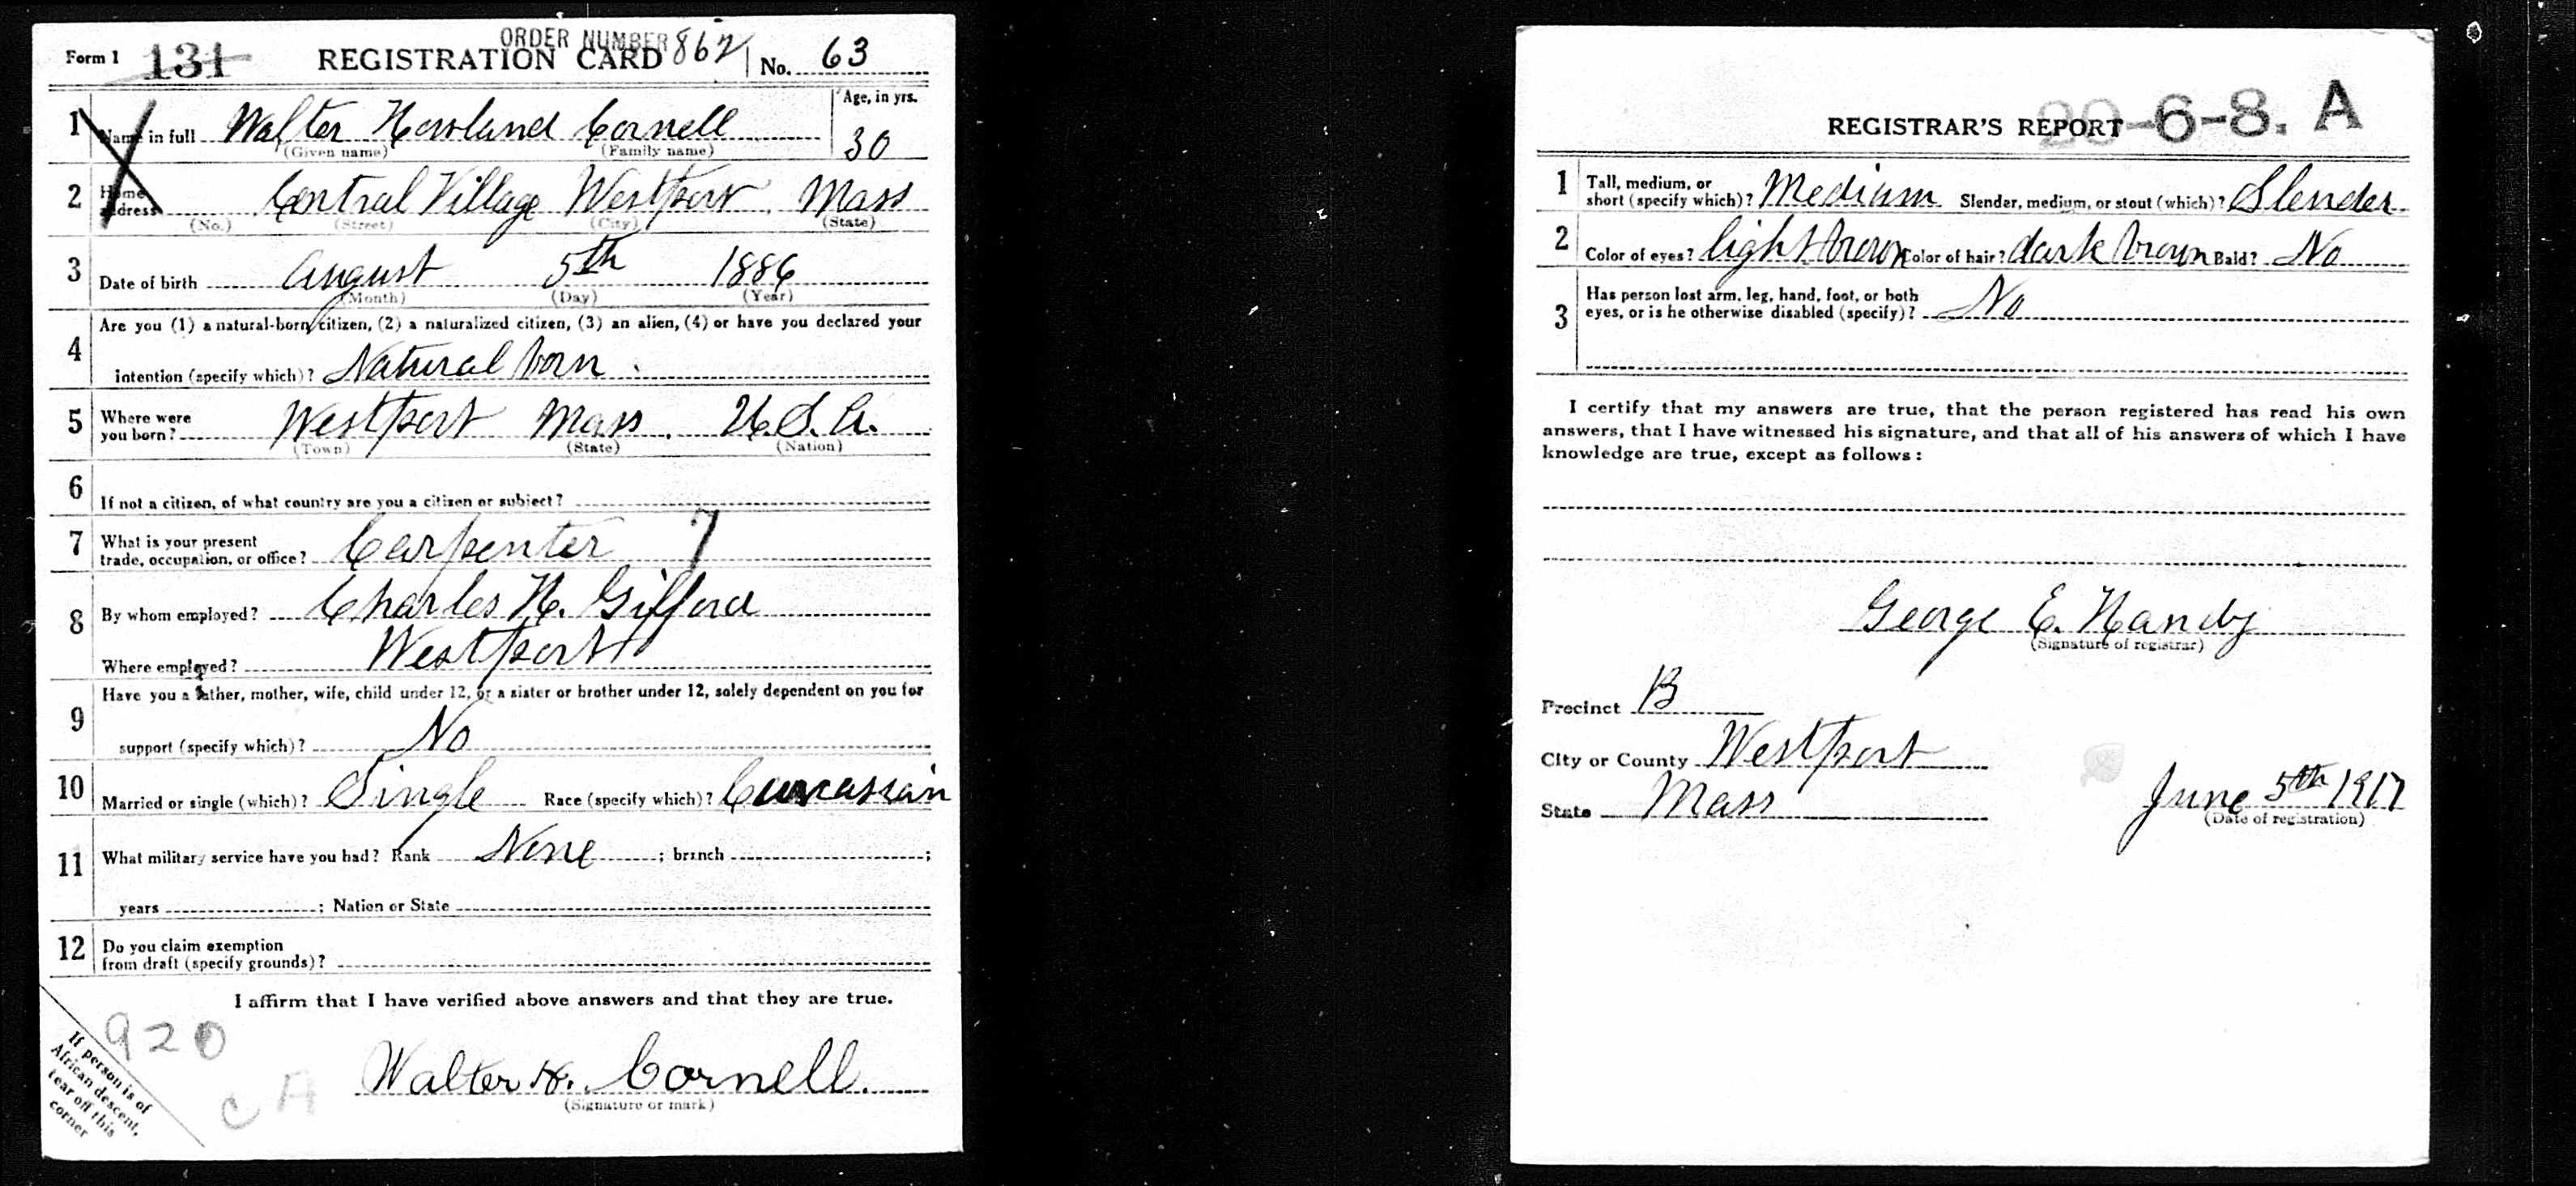 ORDER NUMBER 862
Form 1 131 REGISTRATION CARD No. 63
1 Name in full Walter Howland Cornell Age, in yrs. 30
(Given name) (Family name)
2 Home address Central Village Westport Mass
(No.) (Street) (City) (State)
3 Date of birth August 5th 1886
(Month) (Day) (Year)
4 Are you (1) a natural-born citizen, (2) a naturalized citizen, (3) an alien, (4) or have you declared your
intention (specify which)? Natural born
5 Where were you born? Westport Mass. U.S.A.
(Town) (State) (Nation)
6 If not a citizen, of what country are you a citizen or subject?
7 What is your present
trade, occupation, or office? Carpenter 7
8 By whom employed? Charles H. Gifford
Where employed? Westport
9 Have you a father, mother, wife, child under 12, or a sister or brother under 12, solely dependent on you for
support (specify which)? No
10 Married or single (which)? Single Race (specify which)?
11 What military service have you had? Rank None ; branch ;
years ; Nation or State
12 Do you claim exemption
from draft (specify grounds)?
I affirm that I have verified above answers and that they are true.
920
C A
Walter H. Cornell.
(Signature or mark)
If person is of
African descent,
tear off this
corner
REGISTRAR'S REPORT 20-6-8. A
1 Tall, medium, or
short (specify which)? Medium Slender, medium, or stout (which)? Slender
2 Color of eyes? light brown Color of hair? dark brown Bald? No
3 Has person lost arm, leg, hand, foot, or both
eyes, or is he otherwise disabled (specify)? No
I certify that my answers are true, that the person registered has read his own
answers, that I have witnessed his signature, and that all of his answers of which I have
knowledge are true, except as follows:
George E. Handy
(Signature of registrar)
Precinct B
City or County Westport
State Mass
June 5th 1917
(Date of registration)